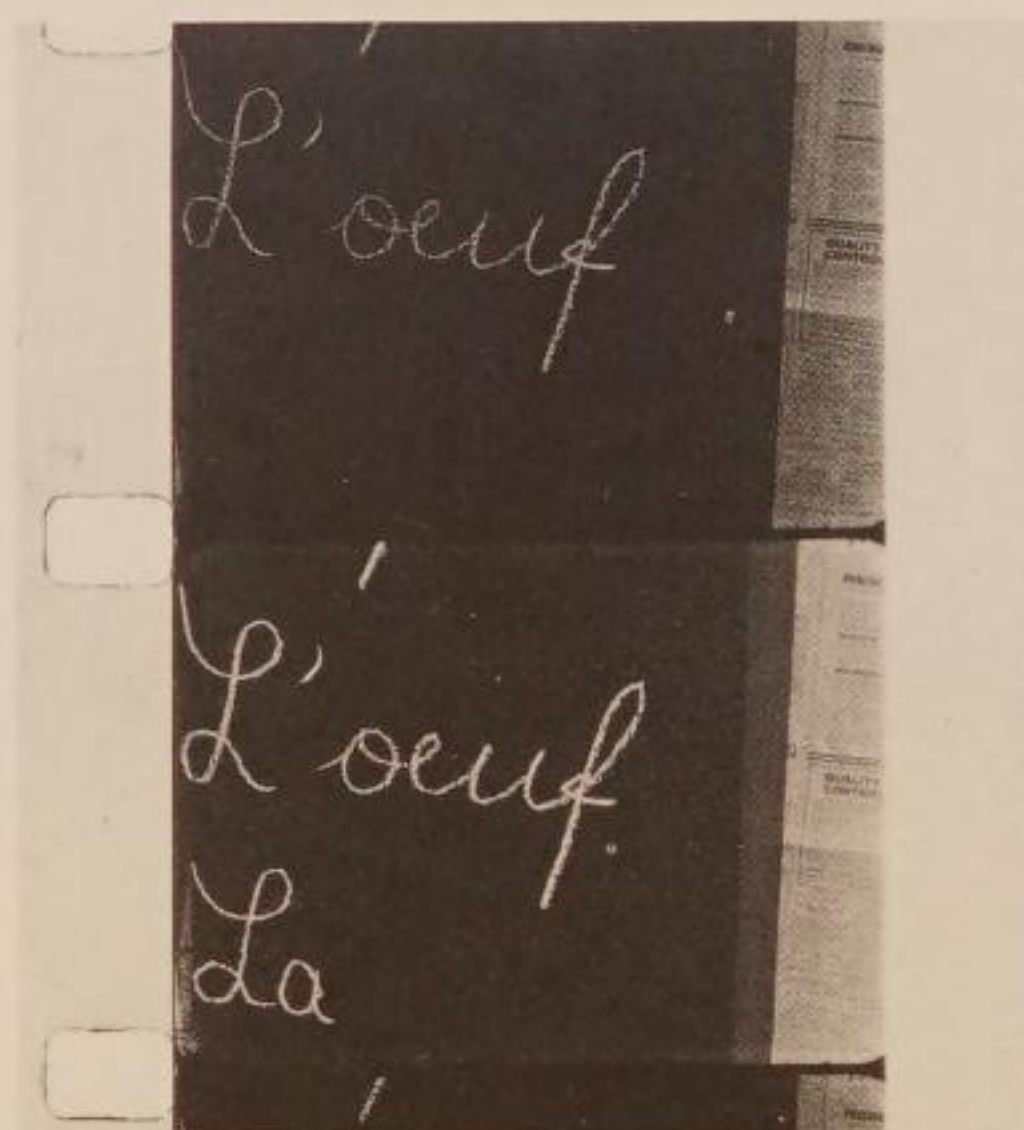 L'oeuf
QUALITY
CONTROL
L'oeuf
La
QUALITY
CONTROL